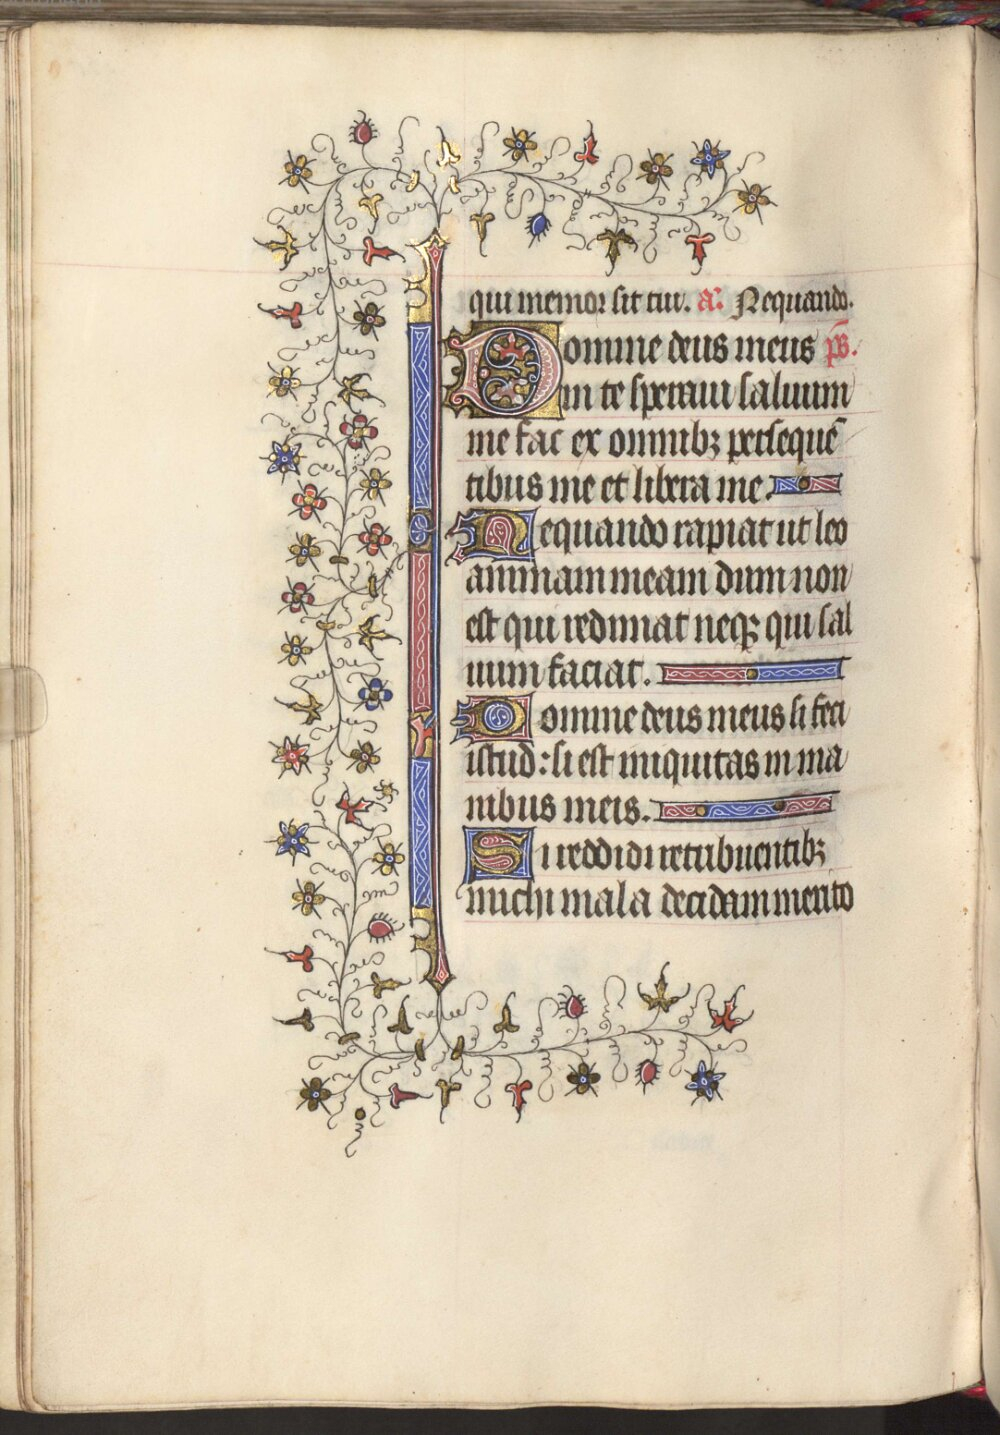 qui memor sit tui. a. Nequando.
Domine deus meus ps.
in te speraui saluum
me fac ex omnibꝫ persequē
tibus me et libera me.
Nequando rapiat ut leo
animam meam dum non
est qui redimat neqꝫ qui sal
uum faciat.
Domine deus meus si feci
istud: si est iniquitas in ma
nibus meis.
Si reddidi retribuentibꝫ
michi mala decidam merito